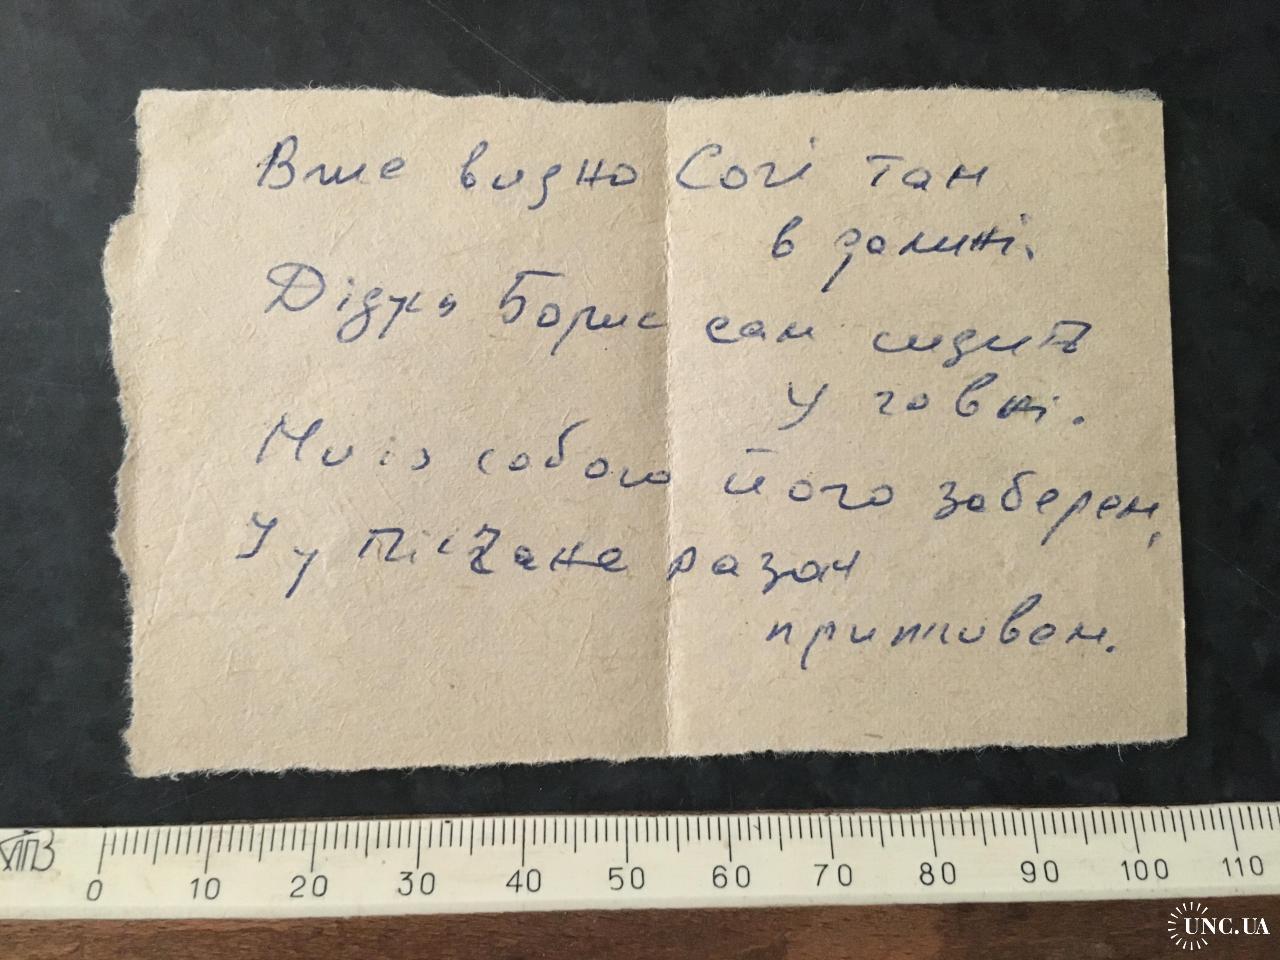 Вже видно Сочі там
в долині.
Дідух Борис сам сидить
у говні.
Ми із собою його заберем,
І у Пісчане разом
приживем.
0 10 20 30 40 50 60 70 80 90 100 110
UNC.UA